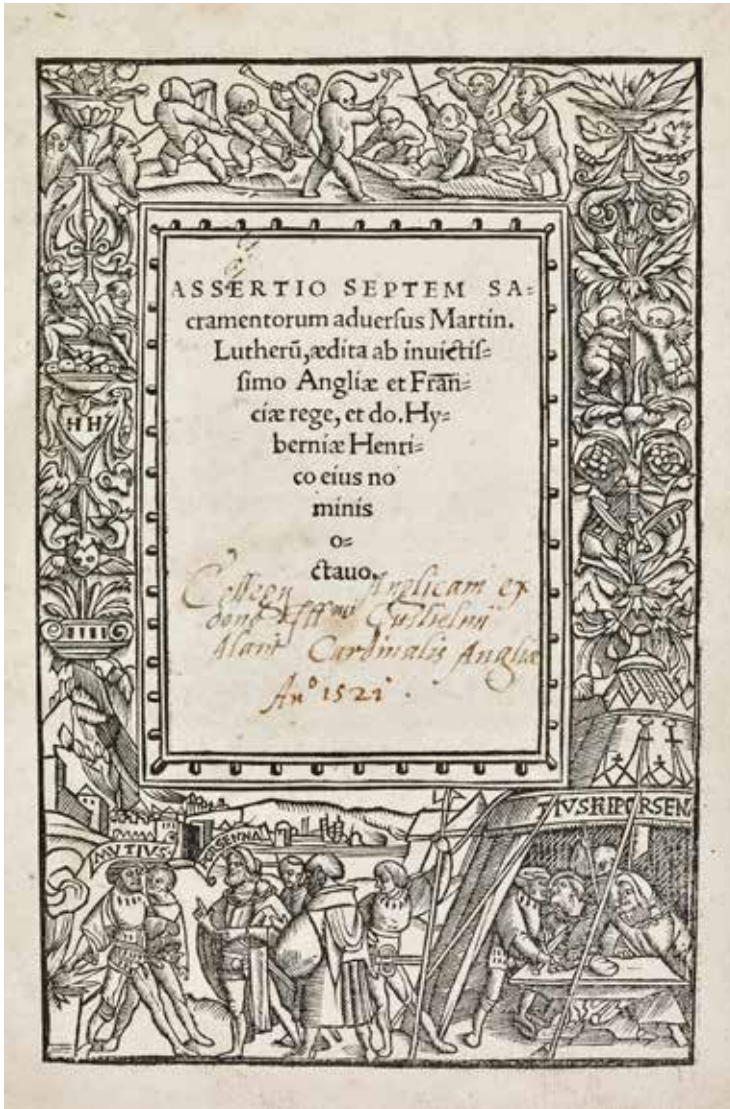 ASSERTIO SEPTEM SA=
cramentorum aduersus Martin.
Lutherū, ædita ab inuictis=
simo Angliæ et Fran=
ciæ rege, et do. Hy=
berniæ Henri=
co eius no
minis
o=
ctauo.
Collegii Anglicani ex
dono Gulielmi
Alani Cardinalis Angliæ
Anº 1521.
HH
MVTIVS
PORSENNA